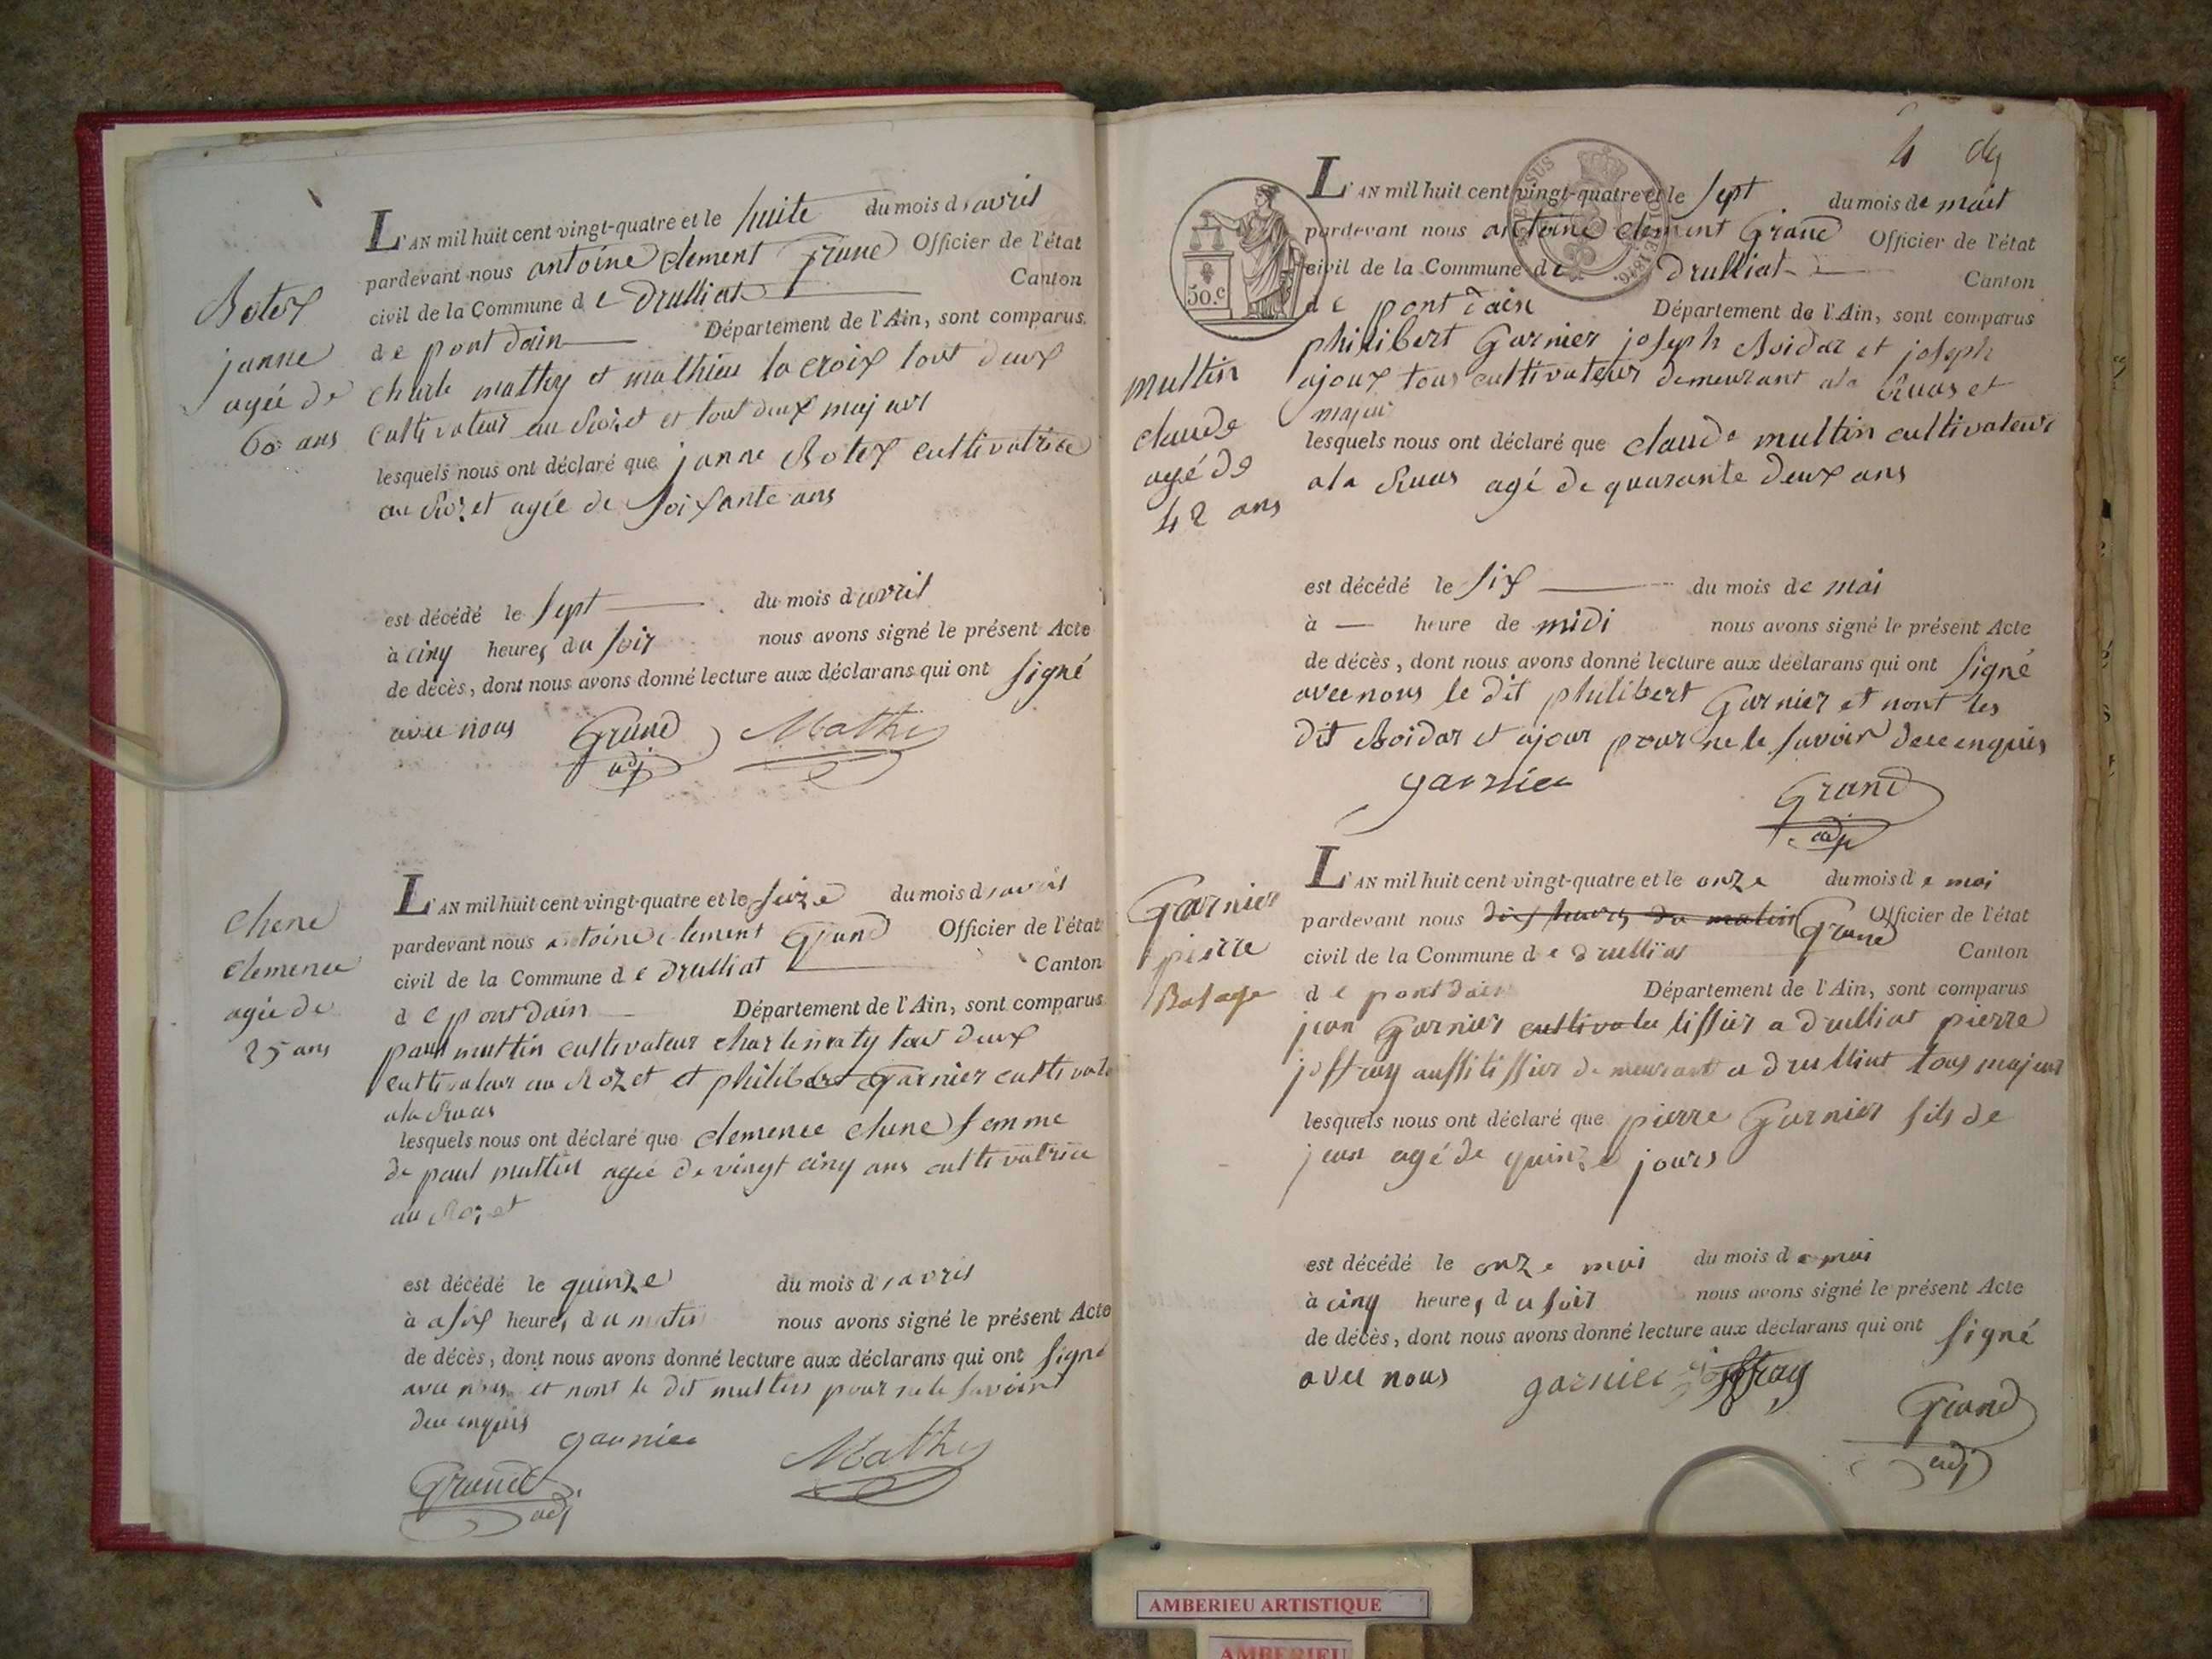 L'AN mil huit cent vingt-quatre et le huite du mois d'avril
pardevant nous antoine clement Grand Officier de l'état
civil de la Commune de Drulliat Canton
de pont dain Département de l'Ain, sont comparus
charle mathy et mathieu la croix tout deux
cultivateur au Rozet et tout deux majeur
lesquels nous ont déclaré que janne Botex cultivatrice
au Rozet agée de soixante ans
Botex
janne
agée de
60 ans
est décédé le sept du mois d'avril
à cinq heures du soir nous avons signé le présent Acte
de décès, dont nous avons donné lecture aux déclarans qui ont signé
avec nous Grand Mathy
adj
L'AN mil huit cent vingt-quatre et le seize du mois d'avril
pardevant nous antoine clement Grand Officier de l'état
civil de la Commune de Drulliat Canton
de pont dain Département de l'Ain, sont comparus
paul multin cultivateur charle maty tout deux
cultivateur au Rozet et philibert Garnier cultivat
a la Ruas
lesquels nous ont déclaré que clemence chene femme
de paul multin agée de vingt cinq ans cultivatrice
au Rozet
chene
clemence
agée de
25 ans
est décédé le quinze du mois d'avril
à a six heures du matin nous avons signé le présent Acte
de décès, dont nous avons donné lecture aux déclarans qui ont signé
avec nous et nont le dit multin pour ne le savoir
dece enquis
garnier Mathy
Grand
adj
4
L'AN mil huit cent vingt-quatre et le sept du mois de mait
pardevant nous antoine clement Grand Officier de l'état
civil de la Commune de Drulliat Canton
de pont dain Département de l'Ain, sont comparus
philibert Garnier joseph Boidar et joseph
ajoux tous cultivateur demeurant a la Ruas et
majeur
lesquels nous ont déclaré que claude multin cultivateur
a la Ruas agé de quarante deux ans
50.c
multin
claude
agé de
42 ans
est décédé le six du mois de mai
à heure de midi nous avons signé le présent Acte
de décès, dont nous avons donné lecture aux déclarans qui ont signé
avec nous le dit philibert Garnier et nont les
dit Boidar et ajoux pour ne le savoir dece enquis
garnier Grand
adj
L'AN mil huit cent vingt-quatre et le onze du mois de mai
pardevant nous dix heures du matin Grand Officier de l'état
civil de la Commune de drulliat Canton
de pont dain Département de l'Ain, sont comparus
jean Garnier cultivateu tissier a drulliat pierre
joffray aussi tissier demeurant a drulliat tous majeur
lesquels nous ont déclaré que pierre Garnier fils de
jean agé de quinze jours
Garnier
pierre
Bas age
est décédé le onze mai du mois de mai
à cinq heures du soir nous avons signé le présent Acte
de décès, dont nous avons donné lecture aux déclarans qui ont signé
avec nous garnier joffray
Grand
adj
AMBERIEU ARTISTIQUE
AMBERIEU